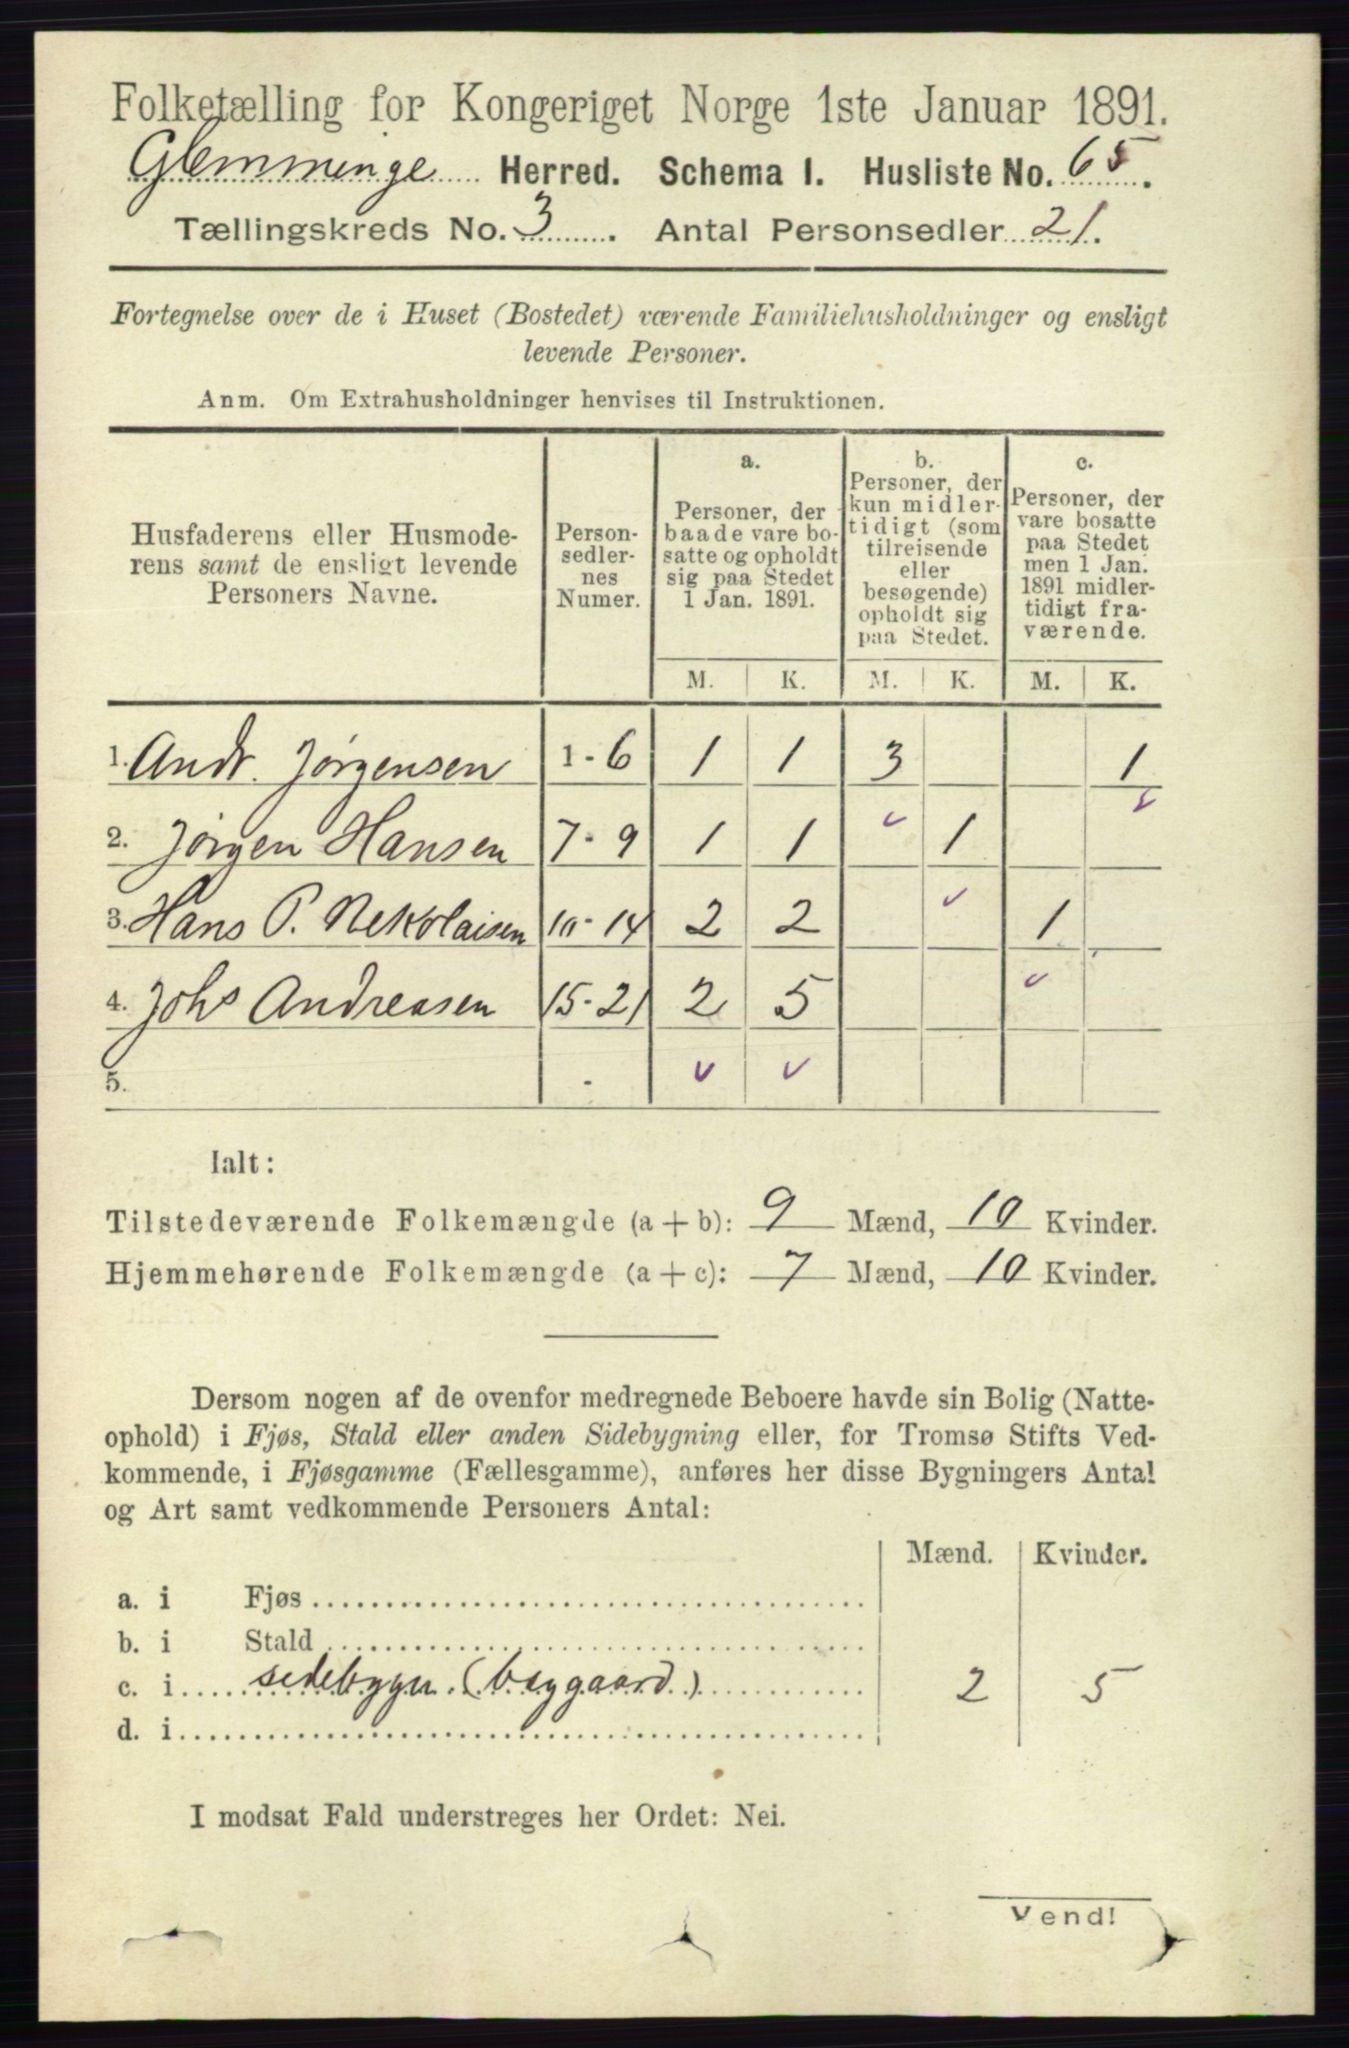 Folketælling for Kongeriget Norge 1ste Januar 1891.
Glemminge Herred. Schema I. Husliste No. 65.
Tællingskreds No. 3. Antal Personsedler 21.
Fortegnelse over de i Huset (Bostedet) værende Familiehusholdninger og ensligt
levende Personer.
Anm. Om Extrahusholdninger henvises til Instruktionen.
Husfaderens eller Husmode-
rens samt de ensligt levende
Personers Navne.
Person-
sedler-
nes
Numer.
a.
Personer, der
baade vare bo-
satte og opholdt
sig paa Stedet
1 Jan. 1891.
b.
Personer, der
kun midler-
tidigt (som
tilreisende
eller
besøgende)
opholdt sig
paa Stedet.
c.
Personer, der
vare bosatte
paa Stedet
men 1 Jan.
1891 midler-
tidigt fra-
værende.
M. K. M. K. M. K.
1. Andr. Jørgensen 1-6 1 1 3 1
2. Jørgen Hansen 7-9 1 1 1
3. Hans P. Nekolaisen 10-14 2 2 1
4. Johs Andreasen 15-21 2 5
5. -
Ialt:
Tilstedeværende Folkemængde (a + b): 9 Mænd, 10 Kvinder.
Hjemmehørende Folkemængde (a + c): 7 Mænd, 10 Kvinder.
Dersom nogen af de ovenfor medregnede Beboere havde sin Bolig (Natte-
ophold) i Fjøs, Stald eller anden Sidebygning eller, for Tromsø Stifts Ved-
kommende, i Fjøsgamme (Fællesgamme), anføres her disse Bygningers Antal
og Art samt vedkommende Personers Antal:
Mænd. Kvinder.
a. i Fjøs
b. i Stald
c. i sidebygn. (baggaard) 2 5
d. i
I modsat Fald understreges her Ordet: Nei.
Vend!